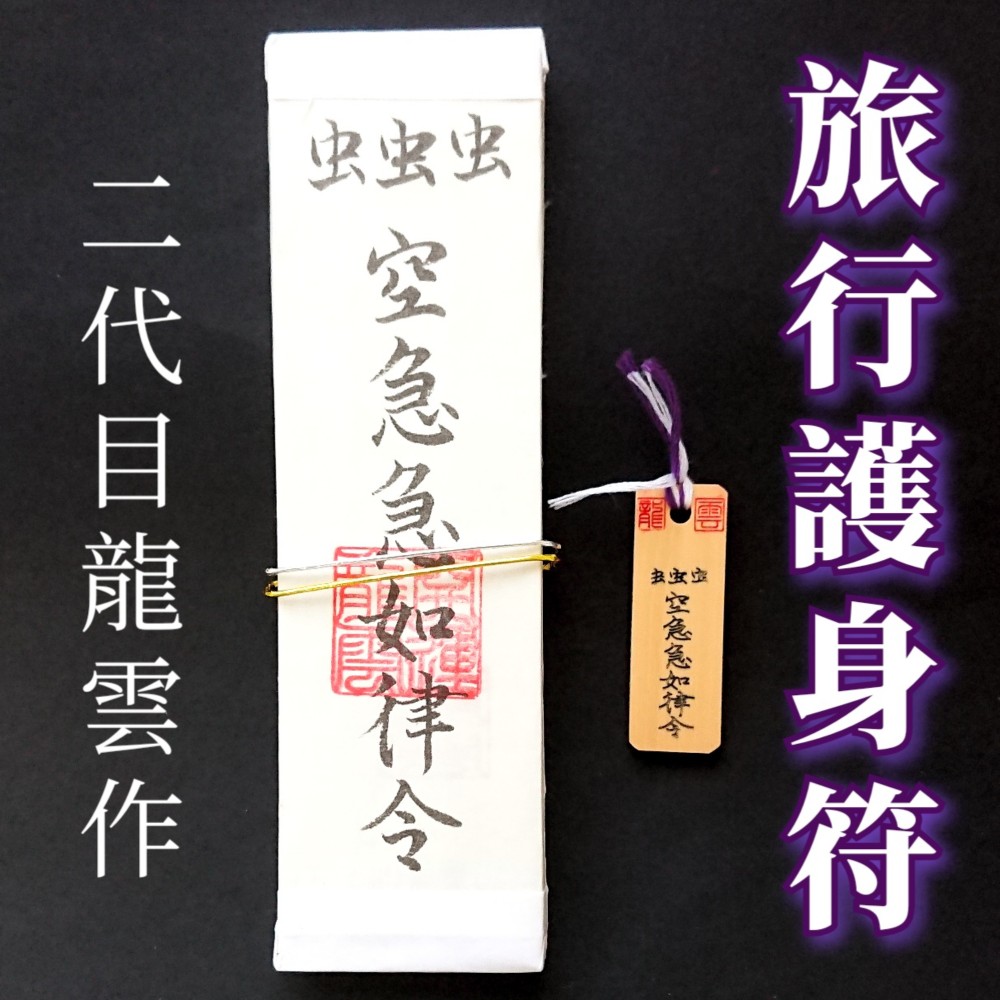 旅行護身符
龍 雲
空急急如律令
虫虫虫
空急急如律令
二代目龍雲作